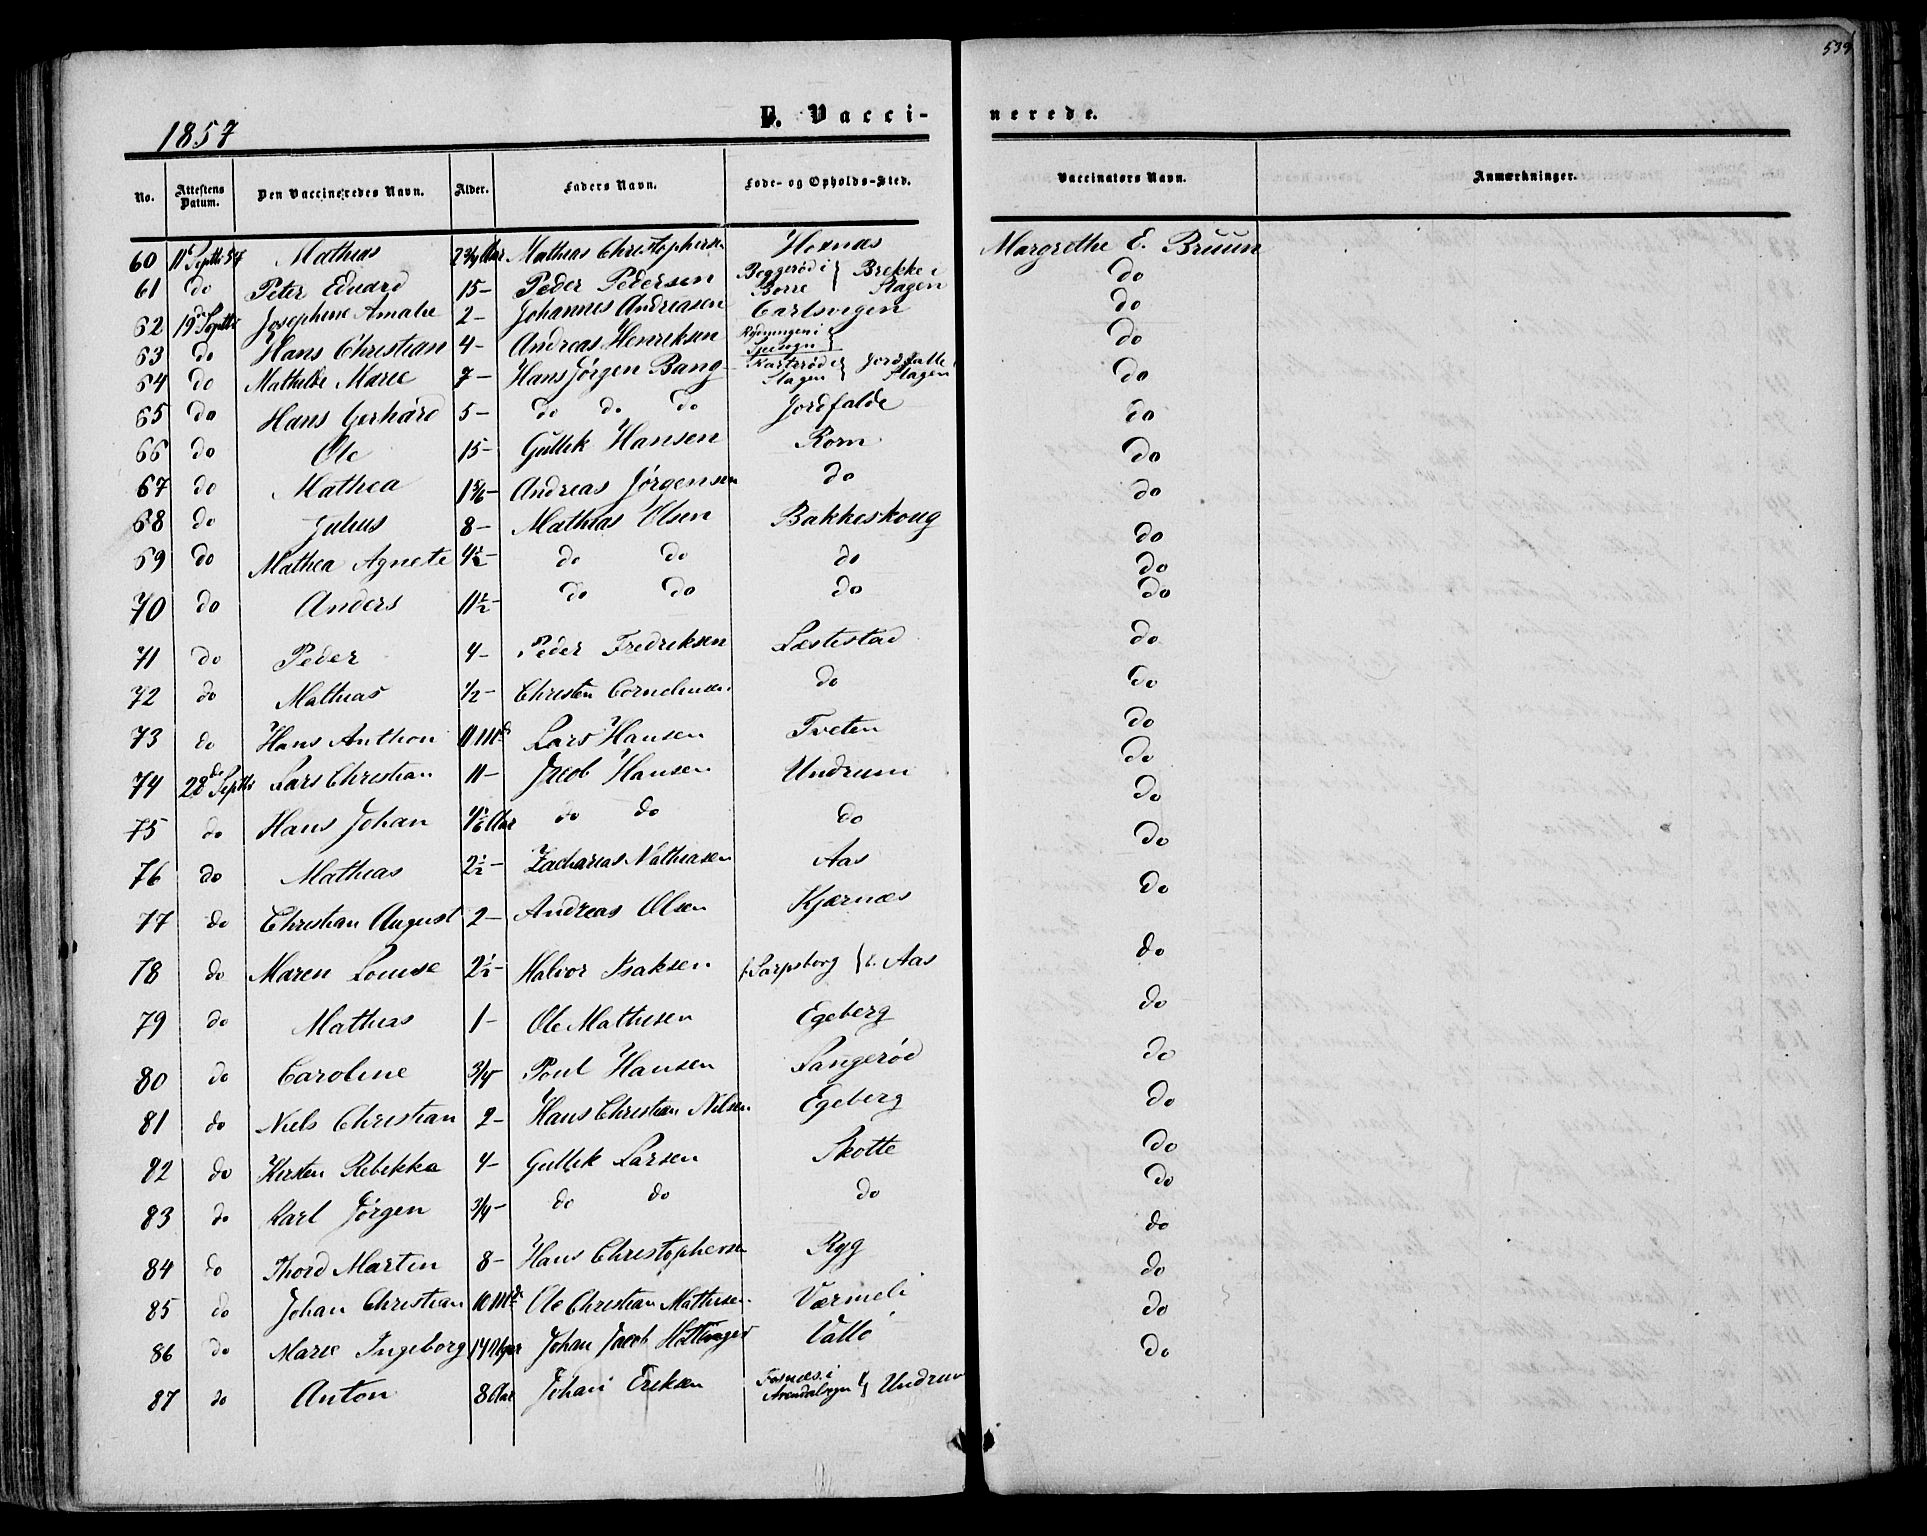 539
1857
F. Vacci-
nerede.
No. Attestens Datum. Den Vaccineredes Navn. Alder. Faders Navn. Føde- og Opholds-Sted. Vaccinators Navn. Anmærkninger.
60 11 Septb 57 Mathias 2 Aar Mathias Christophersen Hoxnæs Margrethe E. Bruun
61 do Peter Eduard 15- Peder Pedersen Beggerød i Borre } Brekke i Slagen do
62 19d Septbr Josephine Amalie 2- Johannes Andreasen Carlsvigen do
63 do Hans Christian 4- Andreas Henriksen Rydningen i do
64 do Mathilde Marie 7- Hans Jørgen Bang Slagen } Jordfalle i Slagen do
65 do Hans Gerhard 5- do do do Jordfalde do
66 do Ole 15- Gullik Hansen Rom do
67 do Mathea 1 5/6- Andreas Jørgensen do do
68 do Julius 8- Mathias Olsen Bakkeskoug do
69 do Mathea Agnete 4½- do do do do
70 do Anders 11½ do do do do
71 do Peder 4- Peder Fredriksen Læstestad do
72 do Mathias 1/2- Christen Corneliusen do do
73 do Hans Anthon 11 Md Lars Hansen Tveten do
74 28de Septbr Lars Christian 11- Jacob Hansen Undrum do
75 do Hans Johan Aar do do do do
76 do Mathias 2½- Zacharias Mathiasen Aas do
77 do Christian August 2- Andreas Olsen Kjærnæs do
78 do Maren Louise 2½- Halvor Isaksen f. Sarpsborg } b. Aas do
79 do Mathias 1- Ole Mathisen Egeberg do
80 do Caroline 3/4- Poul Hansen Langerød do
81 do Niels Christian 2- Hans Christian Nilsen Egeberg do
82 do Kirsten Rebekka 4- Gullik Larsen Skotte do
83 do Karl Jørgen 3/4- do do do do
84 do Thord Martin 8- Hans Christophersen Ryg do
85 do Johan Christian 10 Md Ole Christian Mathisen Værmeli do
86 do Marie Ingeborg 14 Johan Jacob Vallø do
87 do Anton 8 Aar Johan Eriksen } Undrum